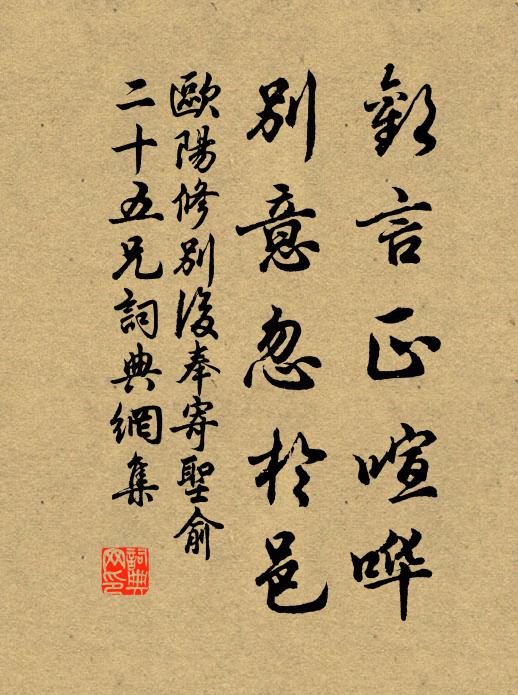 歡言正喧嘩
別意忽於邑
歐陽修別後奉寄聖俞
二十五兄詞典網集
詞典
网印